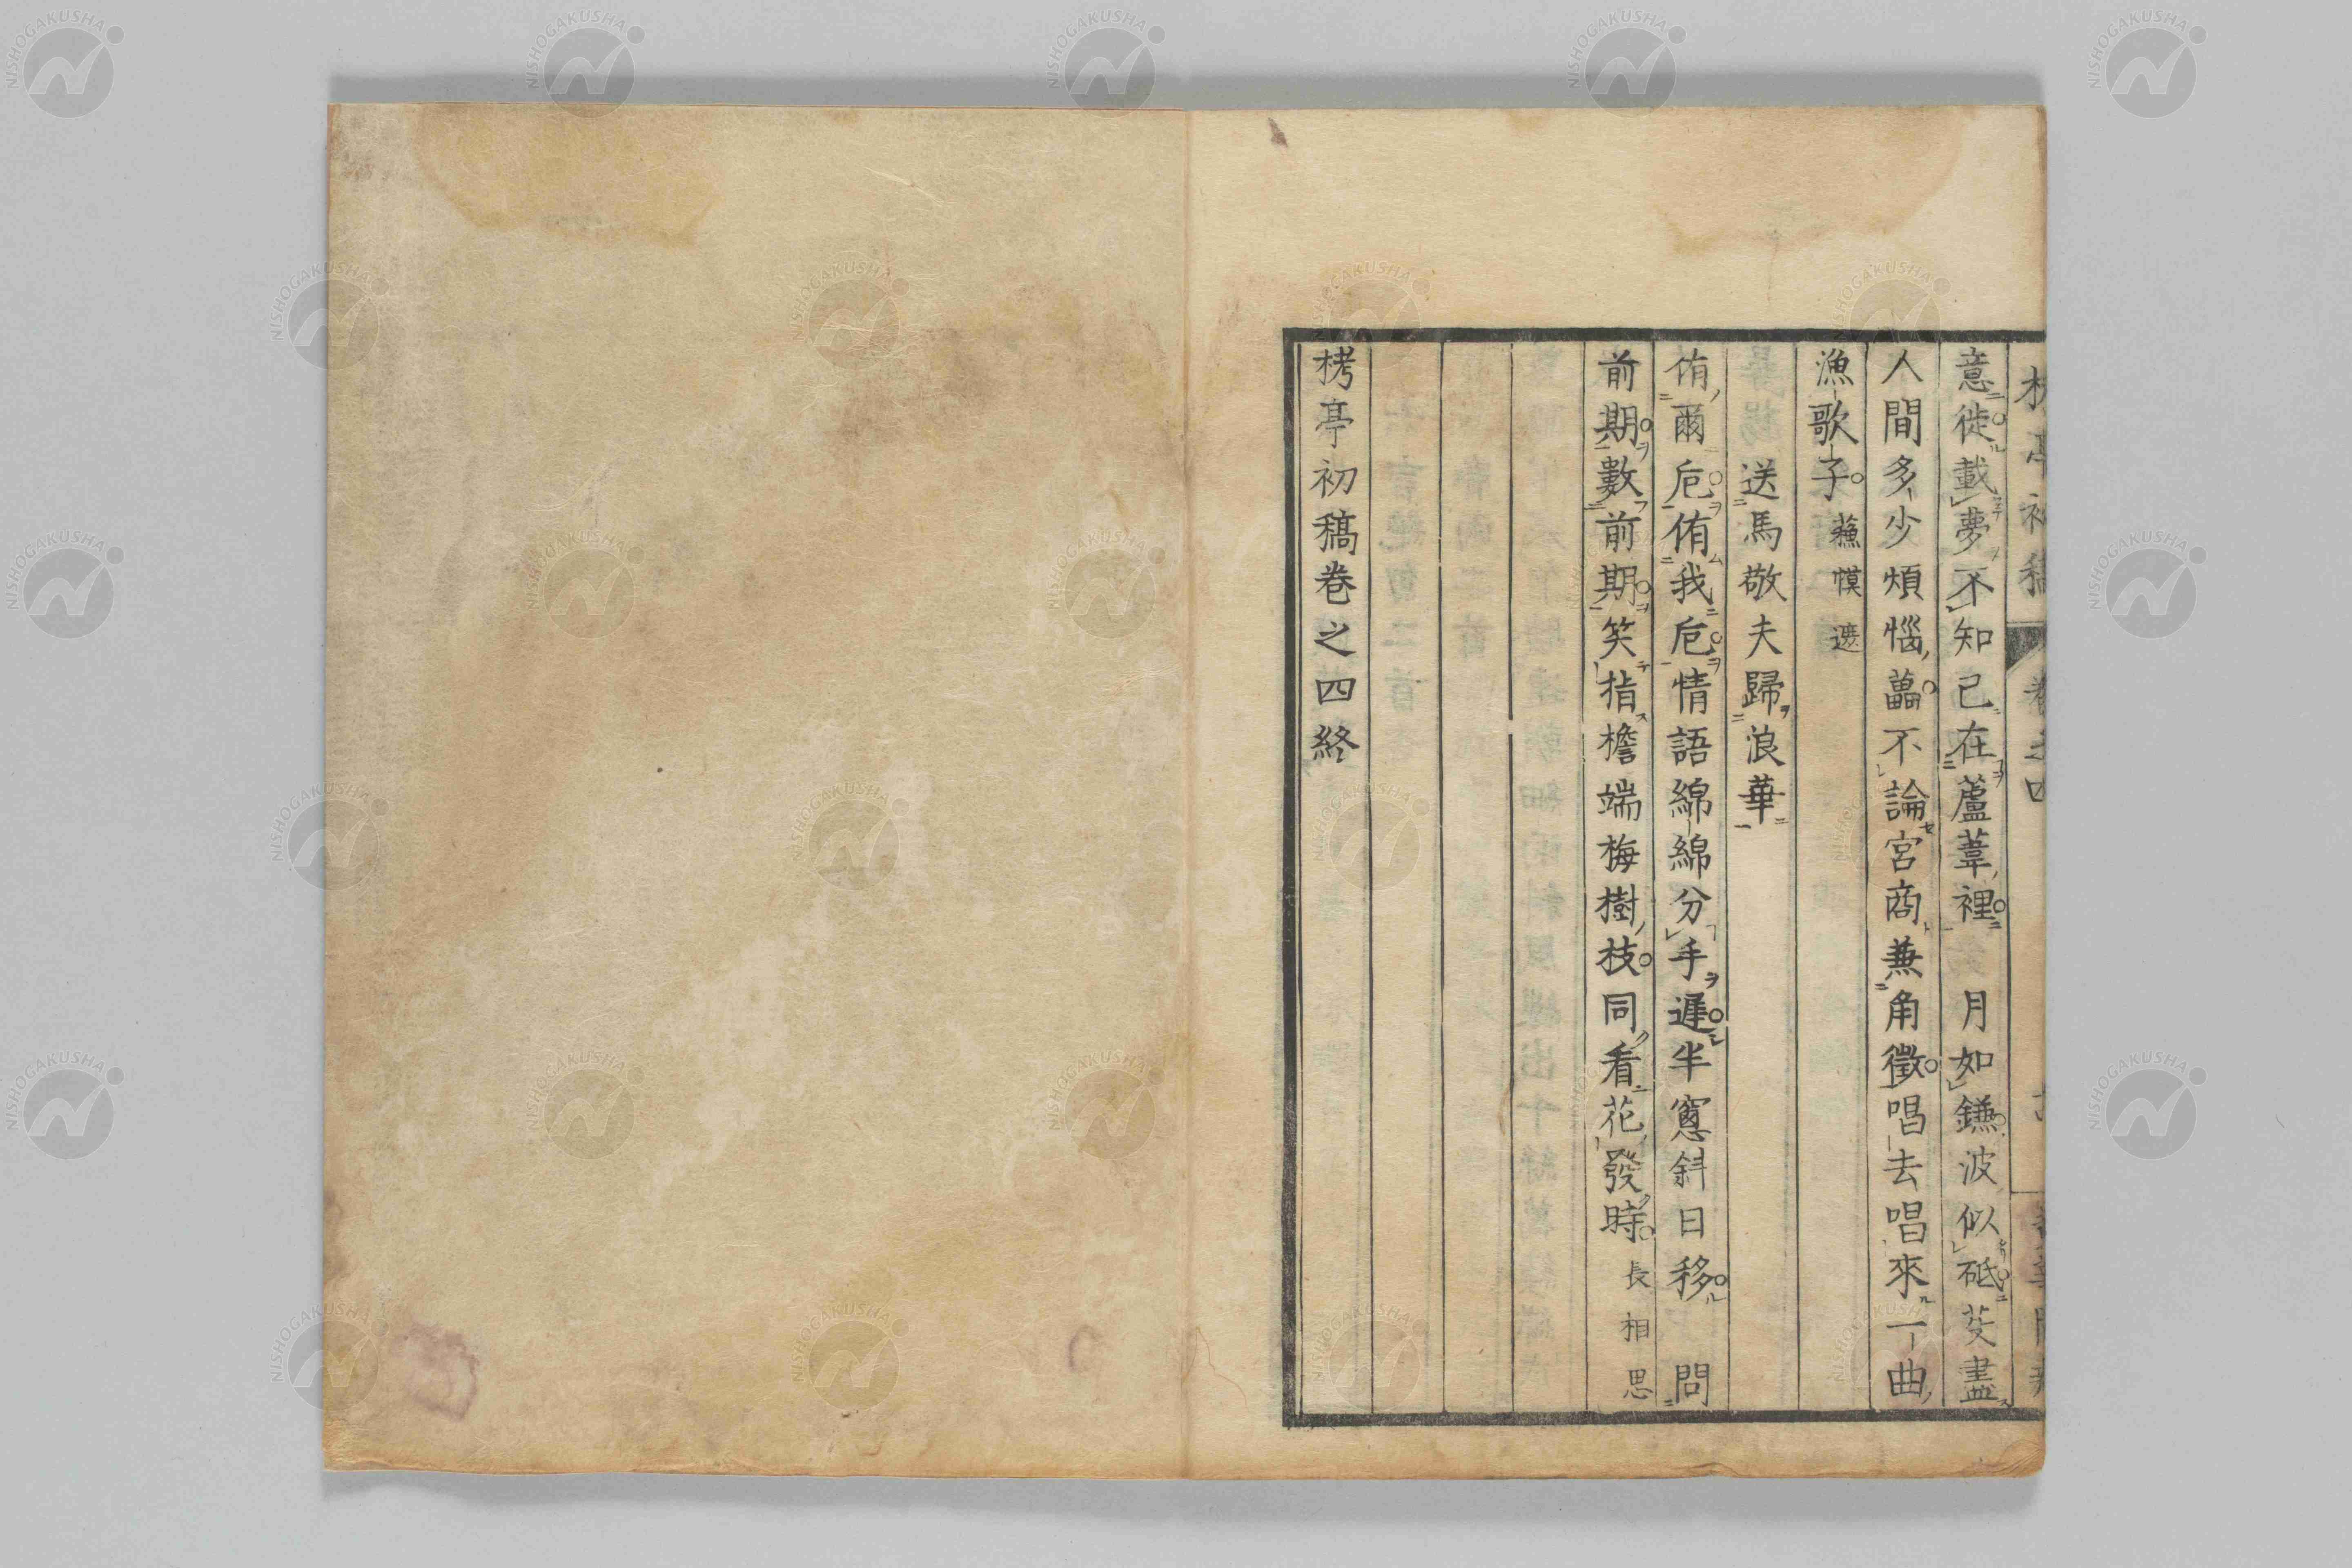 意徙載夢不知已在蘆葦裡 月如鐮波似砥芟盡
人間多少煩惱藟不論宮商兼角徵唱去唱來一曲
漁歌子 蘓幙遮
送馬敬夫歸浪華
侑爾卮侑我卮情語綿綿分手遲半窻斜日移 問
前期數前期笑指檐端梅樹枝同看花發時 長相思
栲亭初稿卷之四終